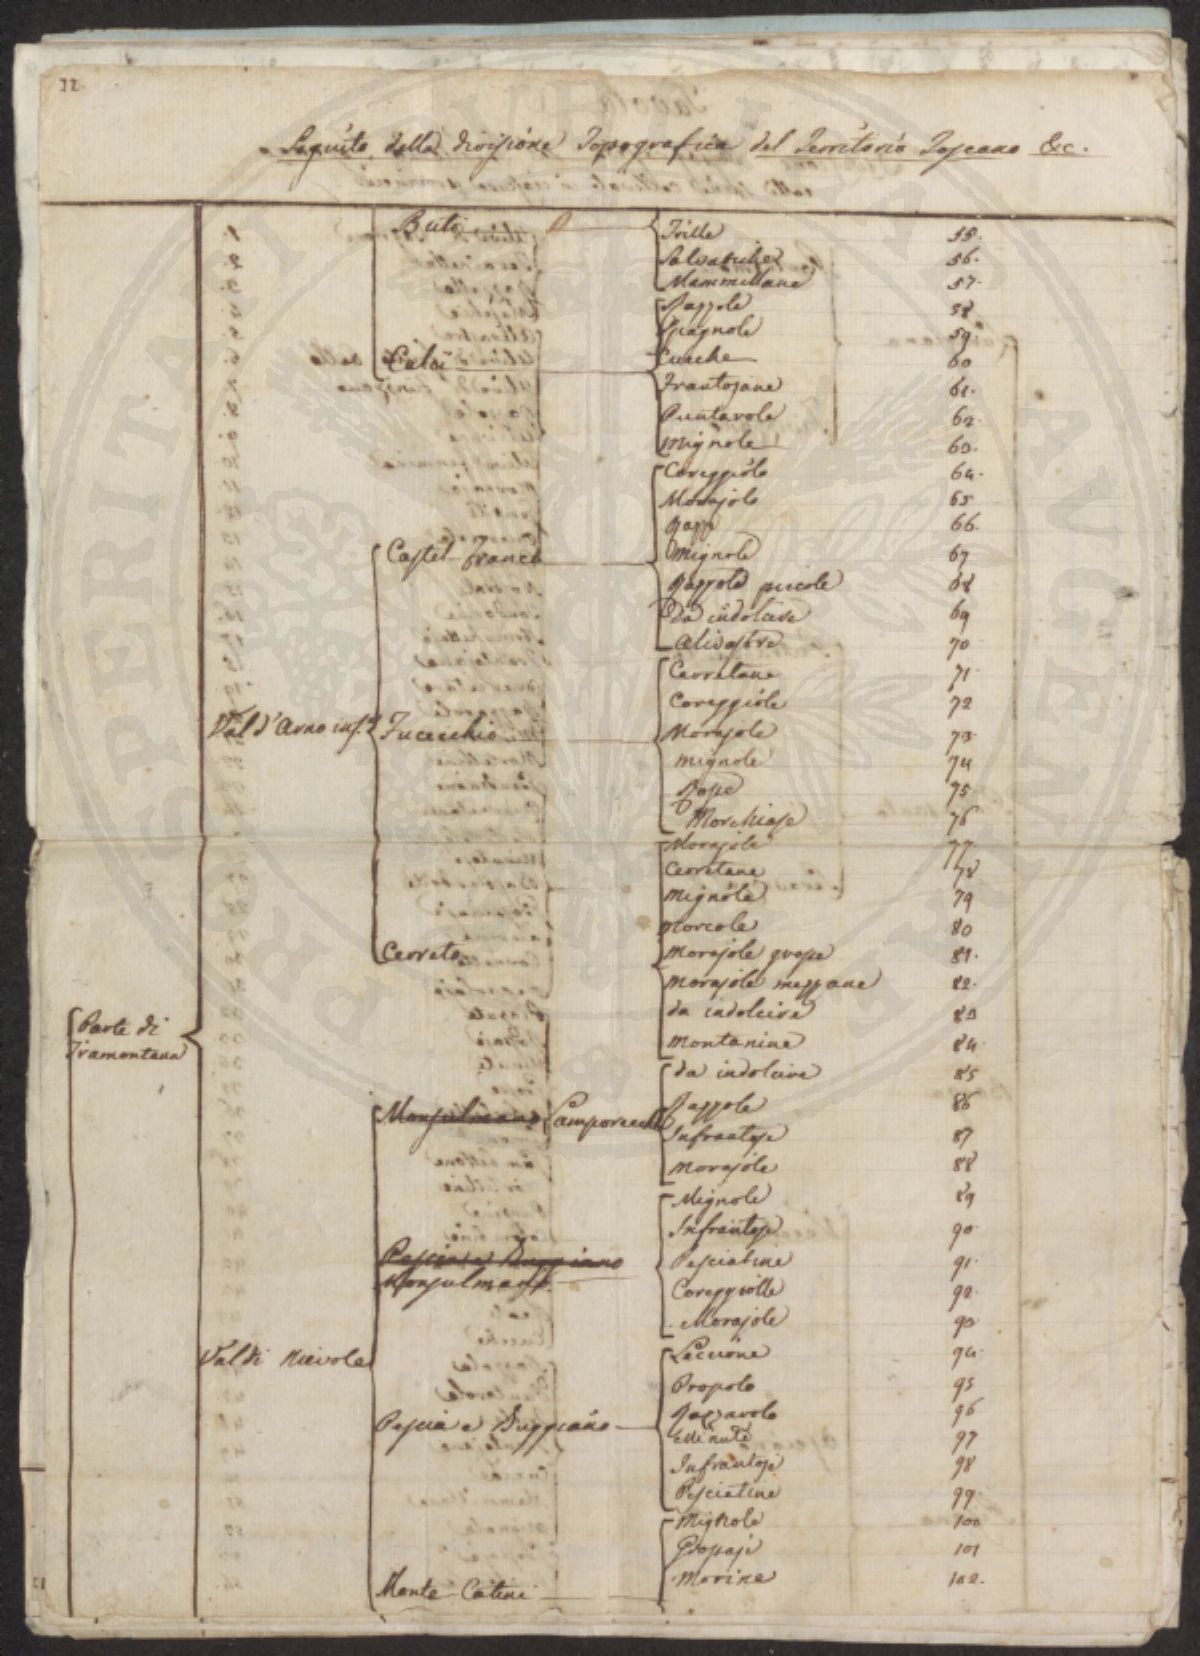 II.
Seguito della divisione Topografica del Territorio Toscano &c.
Buti
Trille 55.
56.
Mammellane 57.
Razzole 58
59
Calci
Cucche 60
Frantojane 61.
Puntarole 62.
Mignole 63.
Coreggiolo 64.
Morajolo 65
Razzi 66.
Castel-franco
Mignole 67
Razzole piccole 68
Da indolcire 69
Olivastre 70
Cerretane 71
Coreggiole 72
Val d'Arno inf.e
Fucecchio
Morajole 73
Mignole 74
75
Morchiaje 76
Morajole 77
Cerretane 78
Mignole 79
Morcole 80
Cerreto
Morajole grosse 81.
Morajole mezzane 82.
Parte di
Tramontana
da indolcire 83
Montanine 84
da indolcire 85
Razzole 86
Monsulmano Camporecchi
Infrantoje 87
Morajole 88
Mignole 89
Infrantoje 90
Pescia e Buggiano
Pesciatine 91
Monsulmano
Coreggiolle 92
Morajole 93
Val di Nievole
Leccione 94
Propolo 95
Razzarolo 96
Pescia e Buggiano
Minute 97
Infrantoje 98
Pesciatine 99
Mignole 100
Grossaje 101
Monte Catini
Morine 102.